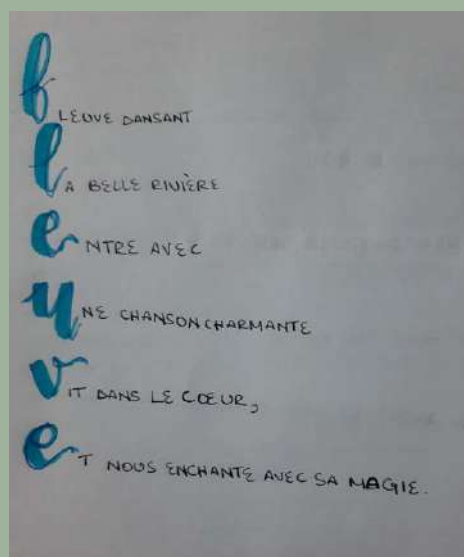 fLEUVE DANSANT
lA BELLE RIVIÈRE
eNTRE AVEC
uNE CHANSON CHARMANTE
vIT DANS LE CŒUR,
eT NOUS ENCHANTE AVEC SA MAGIE.